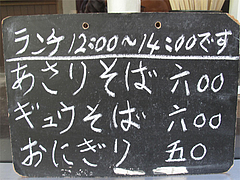 ランチ12:00~14:00です
あさりそば 六00
ギュウそば 六00
おにぎり 五0